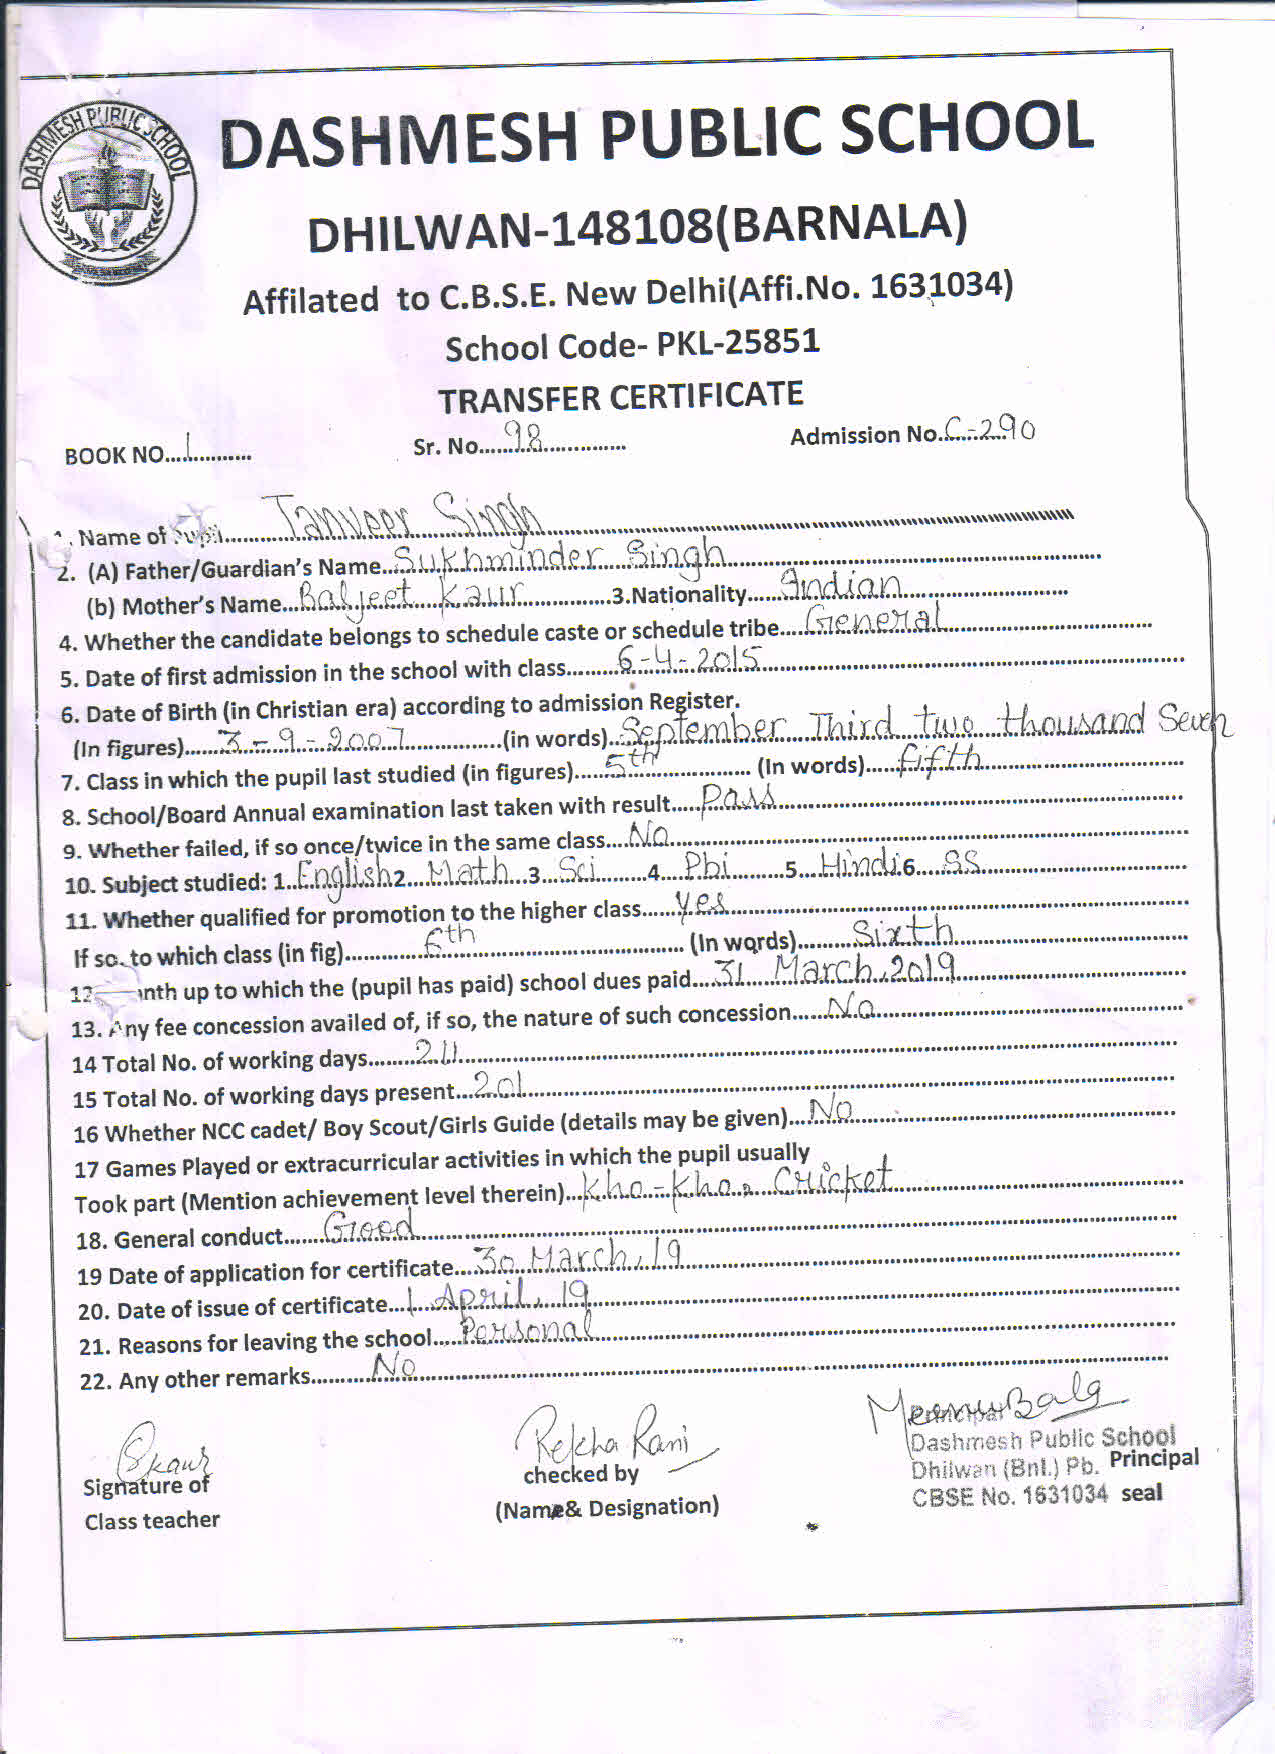 DASHMESH PUBLIC SCHOOL
DASHMESH PUBLIC SCHOOL
DHILWAN-148108(BARNALA)
Affilated to C.B.S.E. New Delhi(Affi.No. 1631034)
School Code- PKL-25851
TRANSFER CERTIFICATE
BOOK NO....1.......... Sr. No......98............. Admission No. C-290
1. Name of Pupil.......... Tanveer Singh
2. (A) Father/Guardian's Name.. Sukhminder Singh
(b) Mother's Name... Baljeet Kaur ...............3.Nationality...... Indian
4. Whether the candidate belongs to schedule caste or schedule tribe.... General
5. Date of first admission in the school with class........ 6-4-2015
6. Date of Birth (in Christian era) according to admission Register.
(In figures)...... 3-9-2007 ................(in words).. September Third two thousand Seven
7. Class in which the pupil last studied (in figures)...... 5th ...................... (In words)..... fifth
8. School/Board Annual examination last taken with result..... Pass
9. Whether failed, if so once/twice in the same class.... No
10. Subject studied: 1.. English 2... Math ...3... Sci .......4.... Pbi .........5... Hindi 6.... SS
11. Whether qualified for promotion to the higher class...... Yes
If so, to which class (in fig)............. 6th .................................... (In words)......... Sixth
12 nth up to which the (pupil has paid) school dues paid... 31 March, 2019
13. Any fee concession availed of, if so, the nature of such concession..... No
14 Total No. of working days........ 211
15 Total No. of working days present... 201
16 Whether NCC cadet/ Boy Scout/Girls Guide (details may be given)... No
17 Games Played or extracurricular activities in which the pupil usually
Took part (Mention achievement level therein)... Kho-Kho, Cricket
18. General conduct...... Good
19 Date of application for certificate... 30 March, 19
20. Date of issue of certificate... 1 April, 19
21. Reasons for leaving the school..... Personal
22. Any other remarks......... No
Skaur
Signature of
Class teacher
Rekha Rani
checked by
(Name& Designation)
Principal
Dashmesh Public School
Dhilwan (Bnl.) Pb. Principal
CBSE No. 1631034 seal